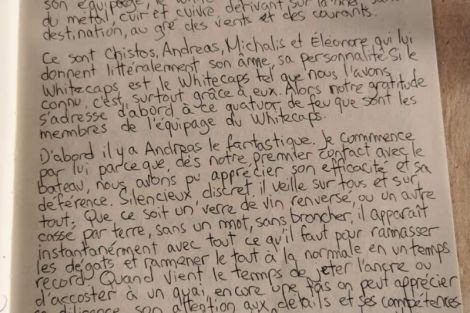 son équipage, le
du métal, cuir et cuivre dérivant sur la mer, sans
destination, au gré des vents et des courants.
Ce sont Chistos, Andreas, Michalis et Éleonore qui lui
donnent littéralement son âme, sa personnalité. Si le
Whitecaps est le Whitecaps tel que nous l'avons
connu, c'est surtout grâce à eux. Alors notre gratitude
s'adresse d'abord à ce quatuor de feu que sont les
membres de l'équipage du Whitecaps.
D'abord il y a Andreas le fantastique. Je commence
par lui parce que, dès notre premier contact avec le
bateau, nous avons pu apprécier son efficacité et sa
déférence. Silencieux, discret, il veille sur tous et sur
tout. Que ce soit un verre de vin renversé, ou un autre
cassé par terre, sans un mot, sans broncher, il apparaît
instantanément avec tout ce qu'il faut pour ramasser
les dégats et ramener le tout à la normale en un temps
record. Quand vient le temps de jeter l'ancre ou
d'accoster à un quai, encore une fois on peut apprécier
sa diligence, son attention aux détails et ses compétences